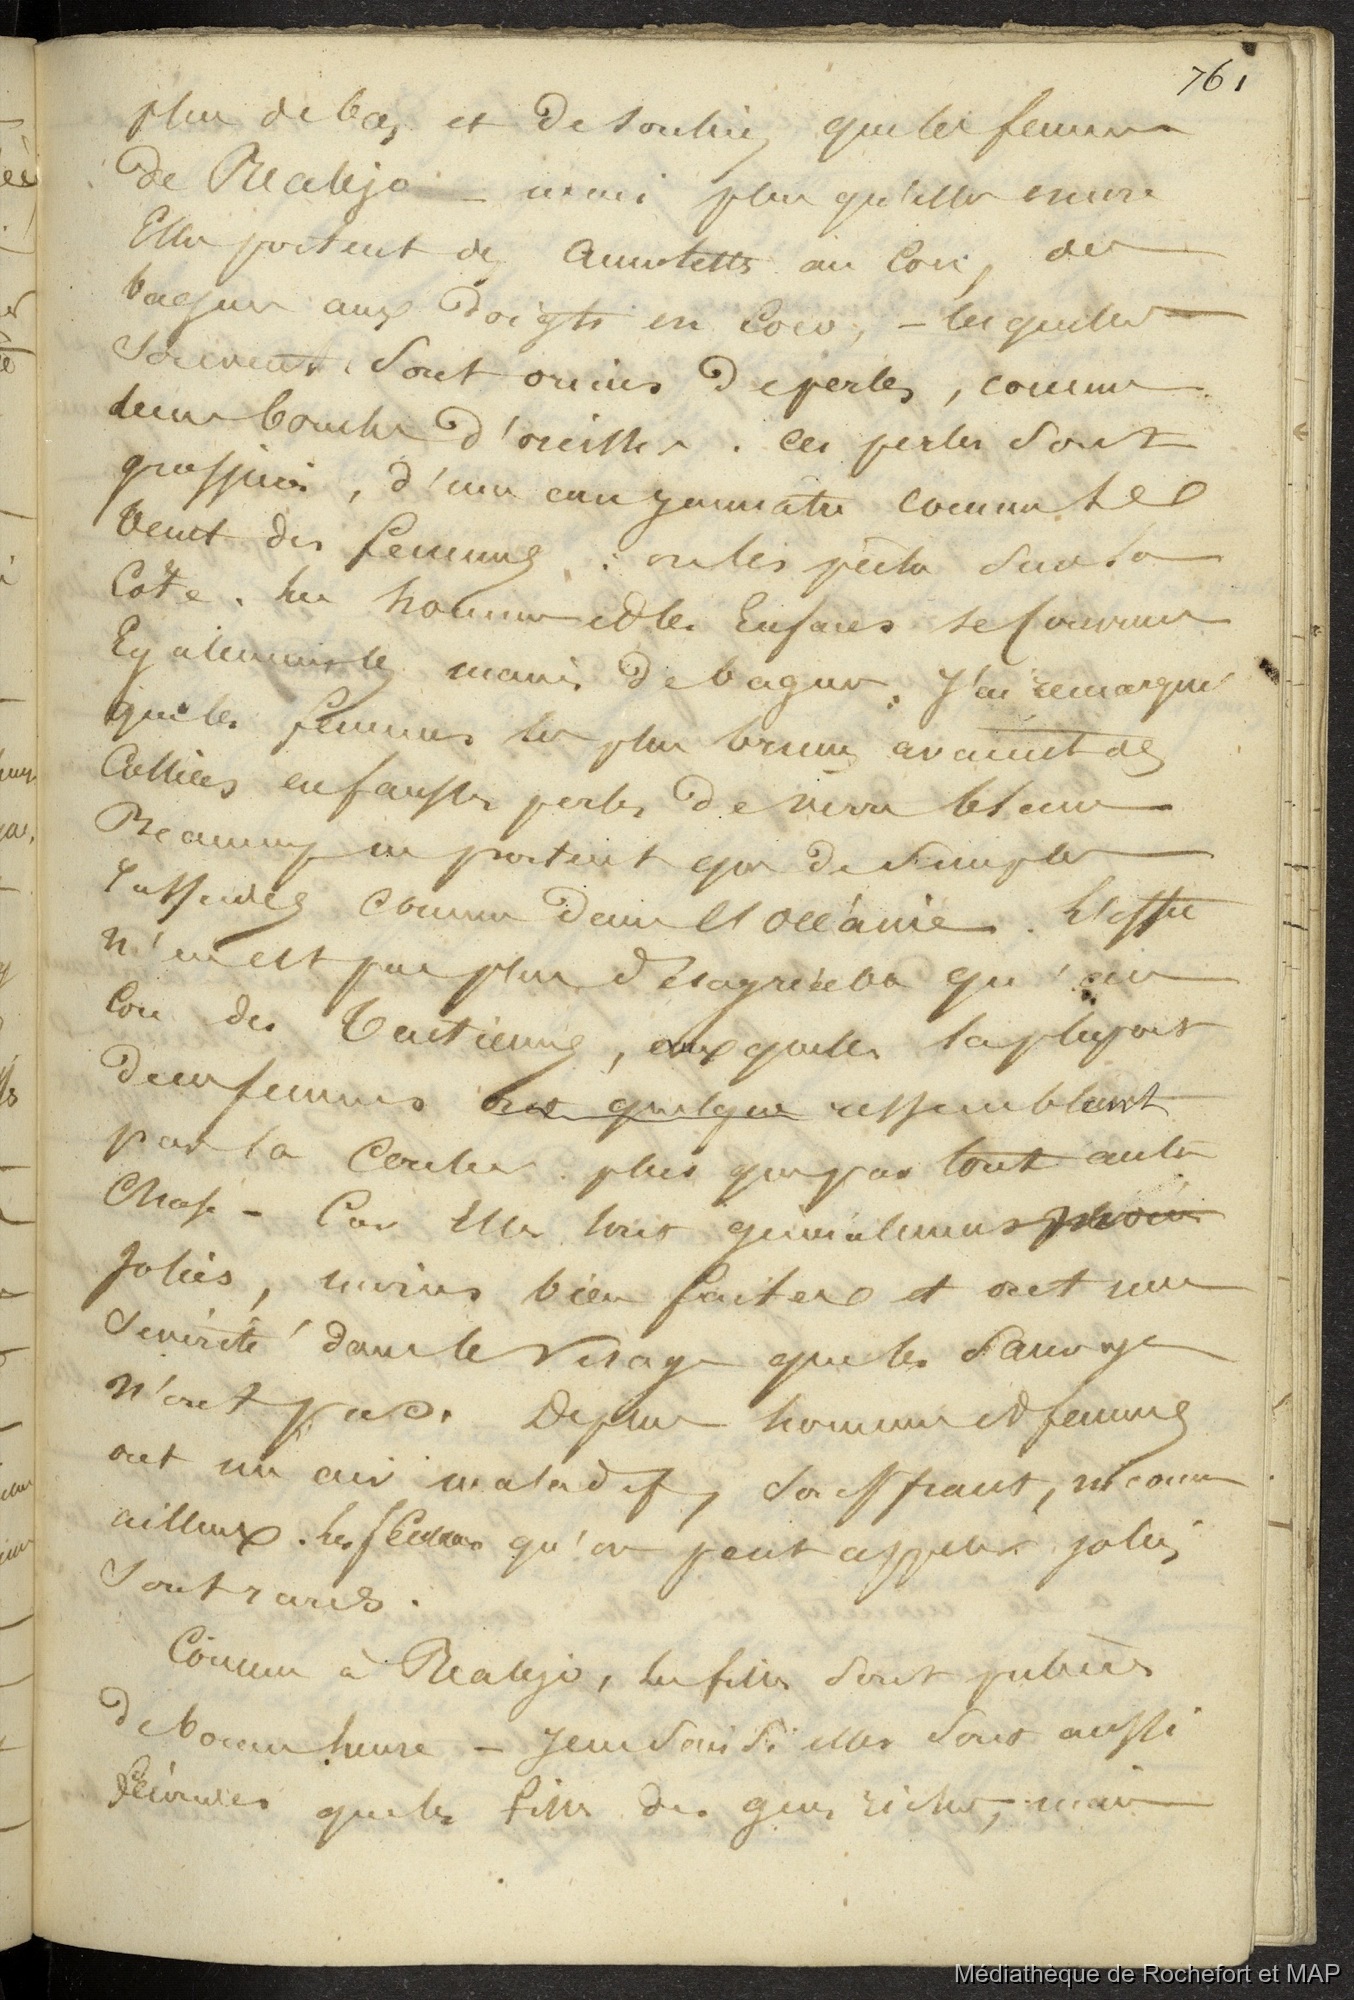 761
plus de bas et de souliers que les femmes
de Realejo — mais plus qu'elles encore
Elles portent des amulettes au cou, des
bagues aux doigts en coco, – lesquelles
souvent sont ornées de perles, comme
leurs boucles d'oreilles. ces perles sont
grossières, d'une eau jaunâtre comme le
des femmes : on les pèche sur la
Côte. les hommes et les Enfans se couvrent
Egalement les mains de bagues. J'ai remarqué
que les femmes les plus brunes avaient des
Colliers en fausses perles de verre blanc
Beaucoup ne portent que de simples
comme dans l'Océanie. L'effet
n'en est pas plus désagréable qu'au
Cou des Taïtiennes, auxquelles la plupart
des femmes ont quelque ressemblent
par la couleur plus que par tout autre
Chose – Car Elles sont généralement moins
jolies, moins bien faites et ont une
sévérité dans le visage que les sauvages
n'ont pas. De plus hommes et femmes
ont un air maladif, souffrant, comme
ailleurs. les femmes qu'on peut appeler jolies
sont rares.
Comme à Realejo, les filles sont pubères
de bonne heure – je ne sais si elles sont aussi
fécondes que les filles des gens riches, mais
Médiathèque de Rochefort et MAP